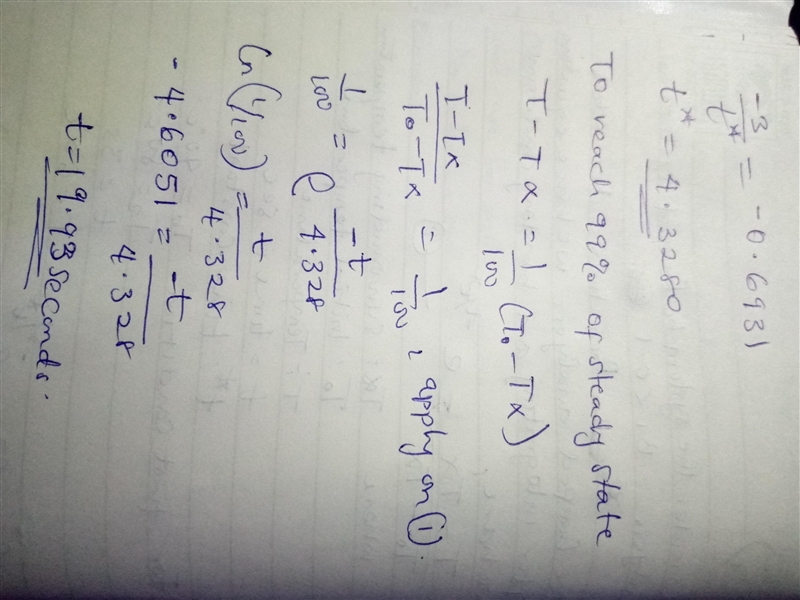 -3/t* = -0.6931
t* = 4.3280
To reach 99% of steady state
T - Tx = 1/100 (To - Tx)
T-Tx/To-Tx = 1/100, apply on (1).
1/100 = e -t/4.328
Ln(1/100) = t/4.328
-4.6051 = -t/4.328
t = 19.93 seconds.